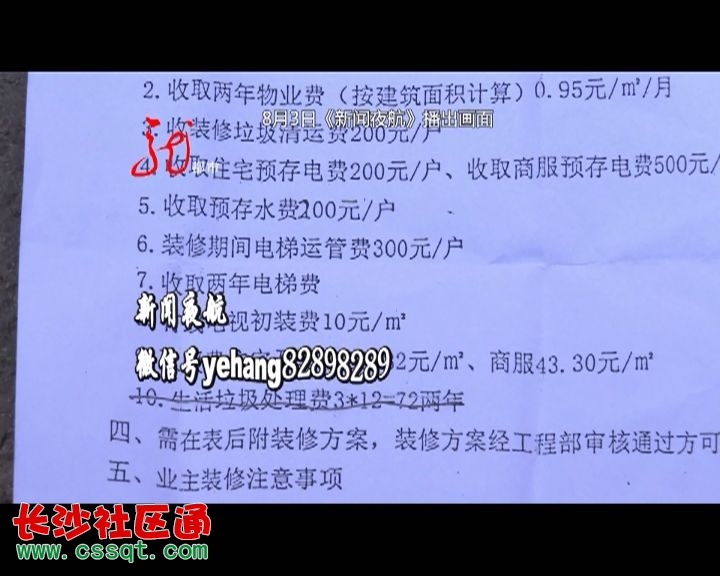 2. 收取两年物业费（按建筑面积计算）0.95元/㎡/月
8月3日《新闻夜航》播出画面
3. 收装修垃圾清运费200元/户
4. 收取住宅预存电费200元/户、收取商服预存电费500元/
5. 收取预存水费200元/户
6. 装修期间电梯运管费300元/户
7. 收取两年电梯费
新闻夜航
视初装费10元/㎡
微信号yehang82898289
2元/㎡、商服43.30元/㎡
10. 生活垃圾处理费3*12=72两年
四、需在表后附装修方案，装修方案经工程部审核通过方可
五、业主装修注意事项
长沙社区通
www.cssqt.com